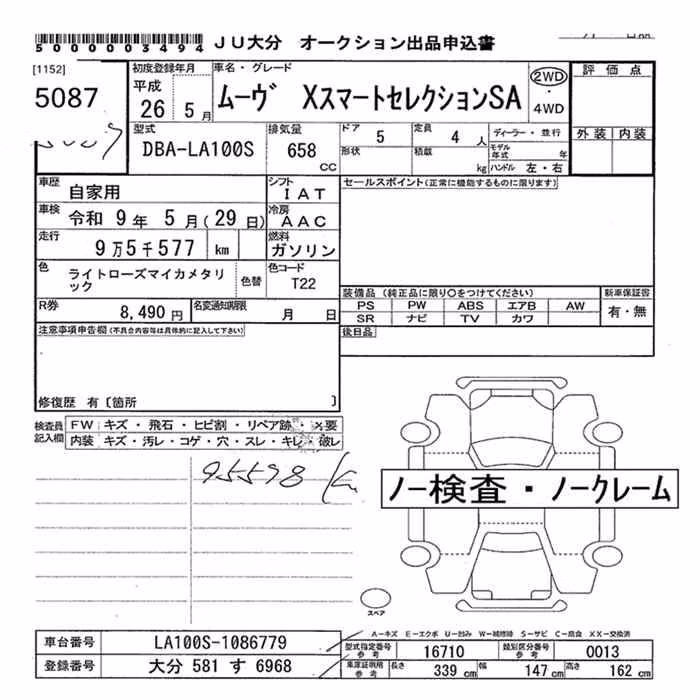 50000003494 JU大分 オークション出品申込書
[1152]
5087
初度登録年月
平成
26 5月
車名・グレード
ムーヴ XスマートセレクションSA
2WD
・
4WD
評価点
外装 内装
型式
DBA-LA100S
排気量
658
CC
ドア
5
定員
4 人
ディーラー・並行
形状
積載
kg
モデル年式 年
ハンドル 左・右
車歴
自家用
シフト
IAT
セールスポイント(正常に機能するものに限ります)
車検
令和 9年 5月(29日)
冷房
AAC
走行
9万5千577 km
燃料
ガソリン
色
ライトローズマイカメタリック
色替
色コード
T22
装備品(純正品に限り〇をつけてください)
新車保証書
PS PW ABS エアB AW
SR ナビ TV カワ
有・無
R券
8,490円
名変通知期限
月 日
後日品
注意事項申告欄(不具合内容等は具体的に記入して下さい)
修復歴 有〔箇所 〕
検査員
記入欄
FW キズ・飛石・ヒビ割・リペア跡・X要
内装 キズ・汚レ・コゲ・穴・スレ・キレ・破レ
95598 km
ノー検査・ノークレーム
スペア
A-キズ E-エクボ U-凹み W-補修跡 S-サビ C-腐食 XX-交換済
車台番号
LA100S-1086779
型式指定番号
参考
16710
類別区分番号
参考
0013
登録番号
大分 581 す 6968
車庫証明用
参考
長さ
339 cm
幅
147 cm
高さ
162 cm